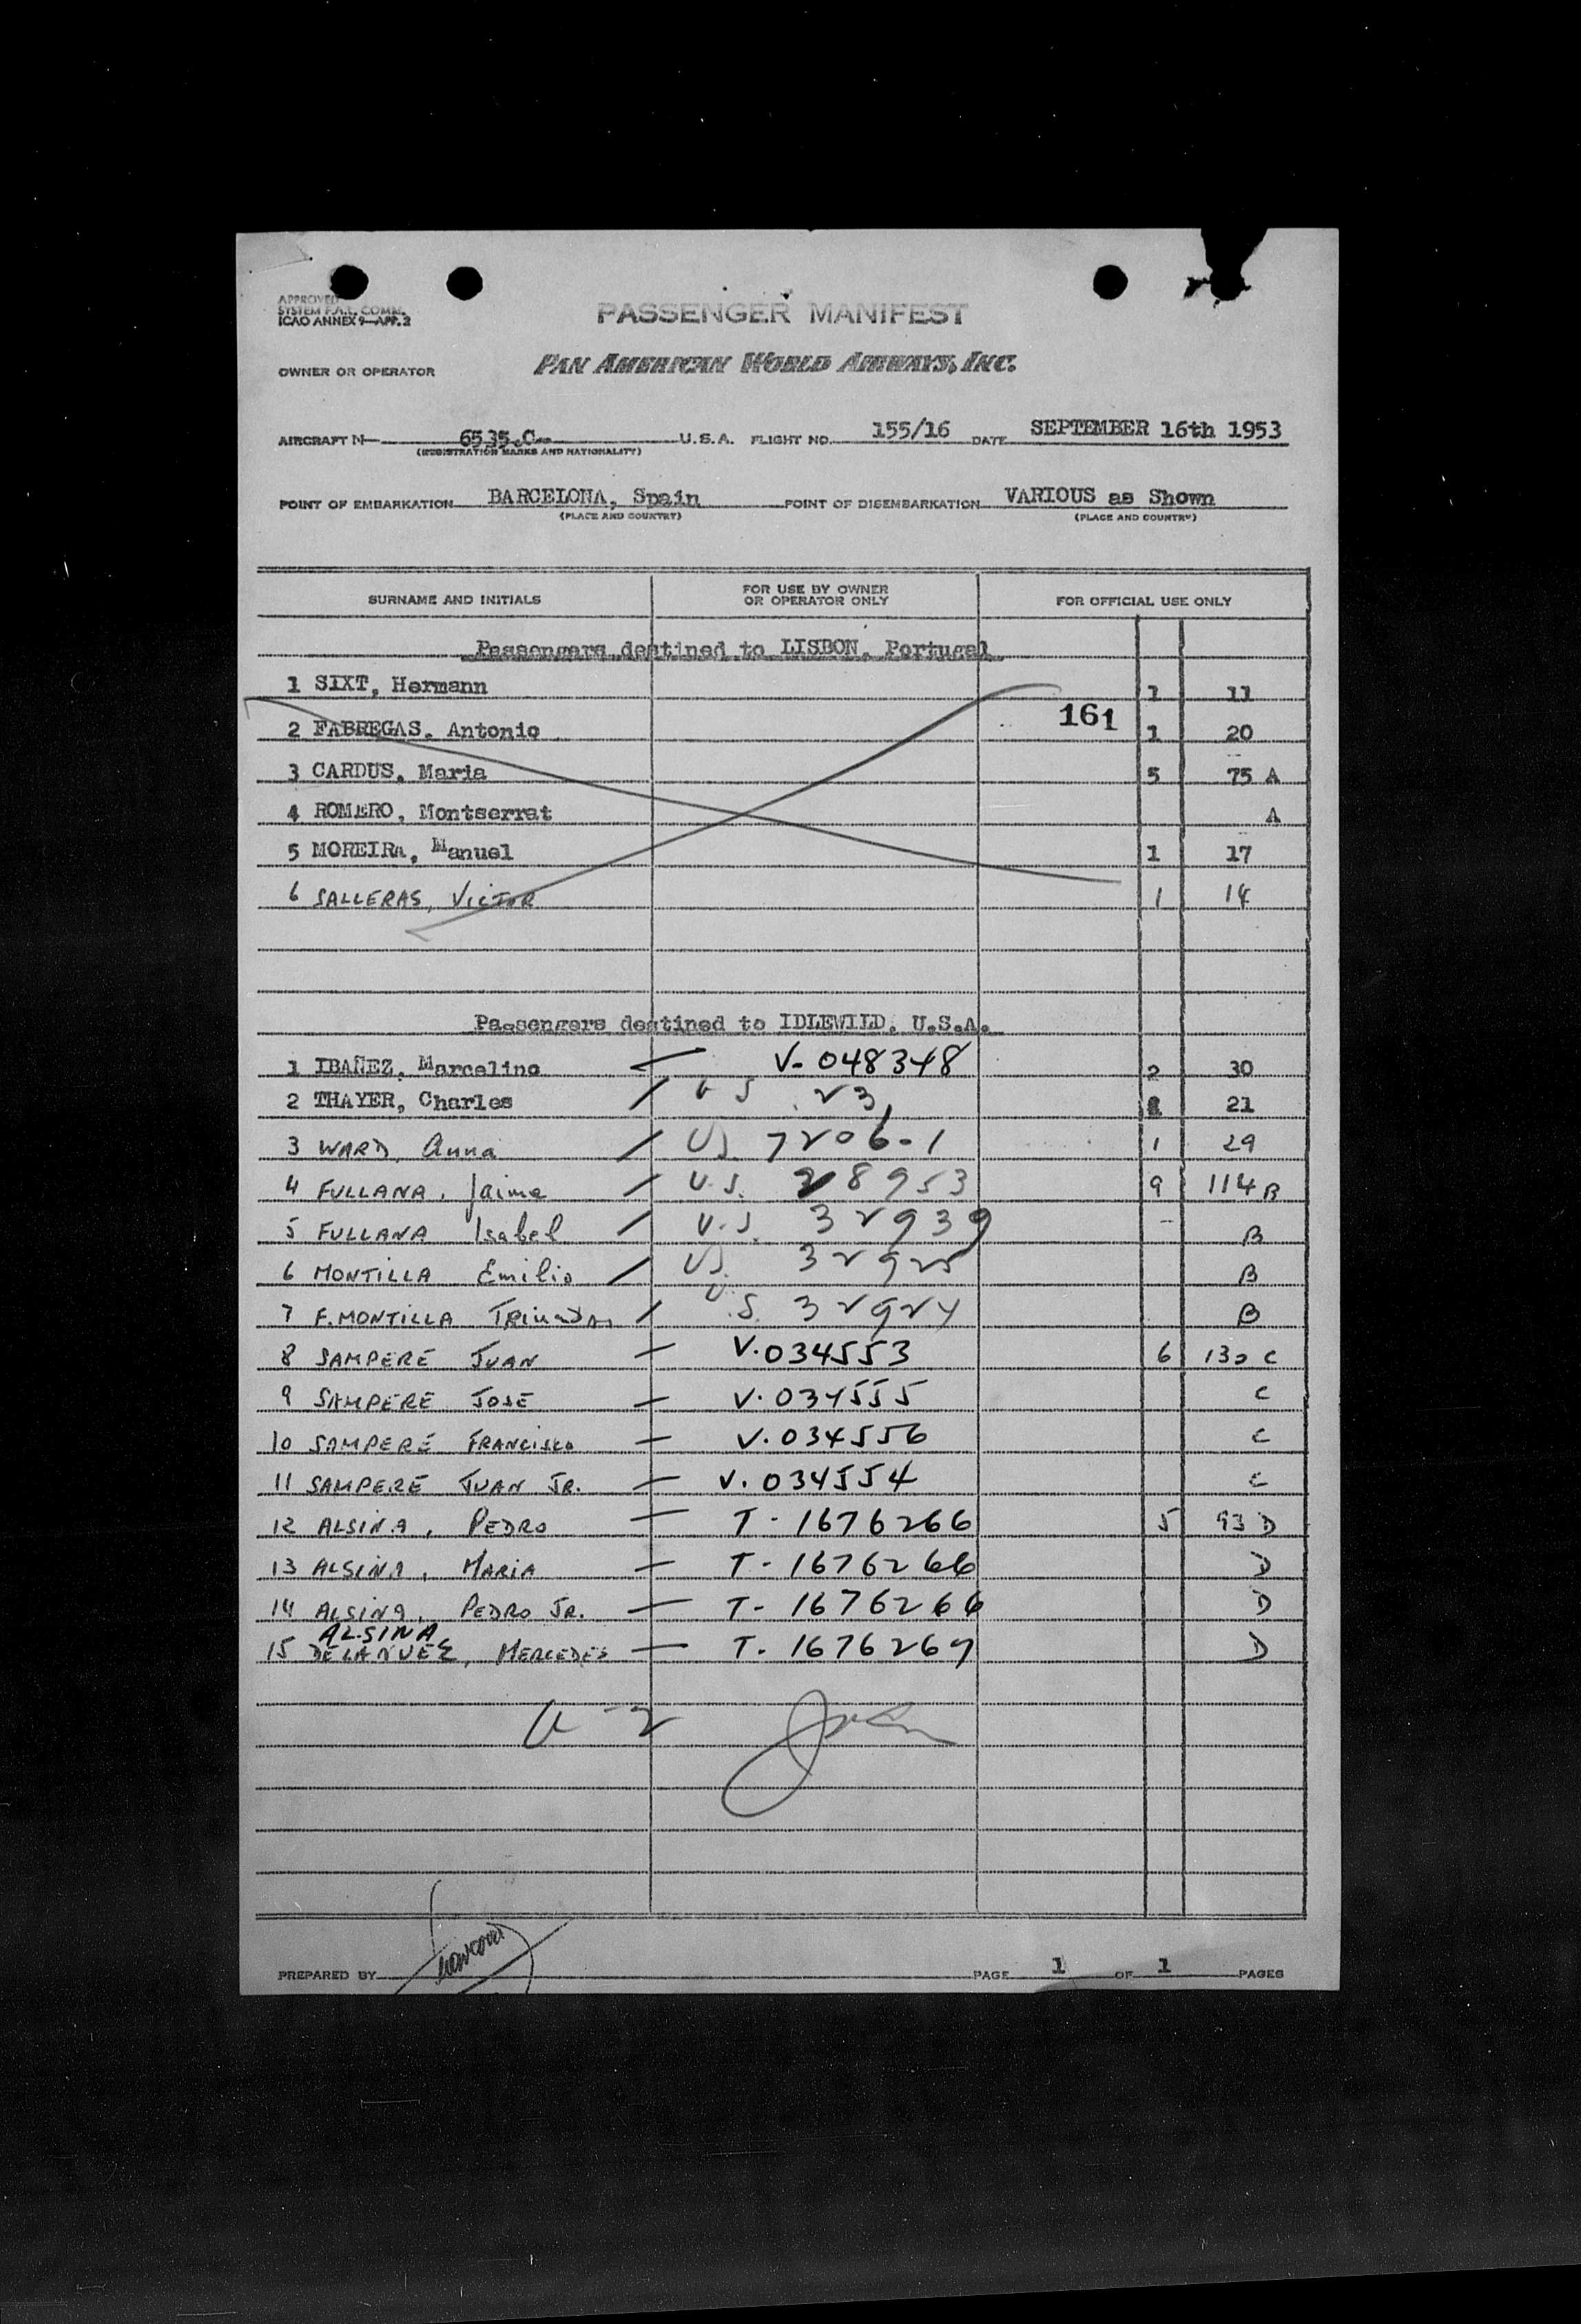 APPROVED
SYSTEM F.A.L. COMM.
ICAO ANNEX 9—APP. 2
PASSENGER MANIFEST
OWNER OR OPERATOR PAN AMERICAN WORLD AIRWAYS, INC.
AIRCRAFT N 6535.C U.S.A. FLIGHT NO. 155/16 DATE SEPTEMBER 16th 1953
(REGISTRATION MARKS AND NATIONALITY)
POINT OF EMBARKATION BARCELONA, Spain POINT OF DISEMBARKATION VARIOUS as Shown
(PLACE AND COUNTRY) (PLACE AND COUNTRY)
SURNAME AND INITIALS FOR USE BY OWNER OR OPERATOR ONLY FOR OFFICIAL USE ONLY
Passengers destined to LISBON, Portugal
1 SIXT, Hermann 1 11
161
2 FABREGAS, Antonio 1 20
3 CARDUS, Maria 5 75 A
4 ROMERO, Montserrat A
5 MOREIRA, Manuel 1 17
6 SALLERAS, VICTOR 1 14
Passengers destined to IDLEWILD, U.S.A.
1 IBAÑEZ, Marcelino — V- 048348 2 30
2 THAYER, Charles / 21
3 WARD, Anna / US 7206-1 1 29
4 FULLANA, Jaime / U.S. 28953 9 114 B
5 FULLANA Isabel / U.S. 32939 B
6 MONTILLA Emilio / US. 32925 B
7 F. MONTILLA / U.S. 32924 B
8 SAMPERE JUAN — V. 034553 6 130 C
9 SAMPERE JOSE — V. 034555 C
10 SAMPERE FRANCISCO — V. 034556 C
11 SAMPERE JUAN JR. — V. 034554 C
12 ALSINA, PEDRO — T - 1676266 5 93 D
13 ALSINA, MARIA — T - 1676266 D
14 ALSINA, PEDRO JR. — T- 1676266 D
ALSINA
15 MERCEDES — T. 1676267 D
PREPARED BY PAGE 1 OF 1 PAGES